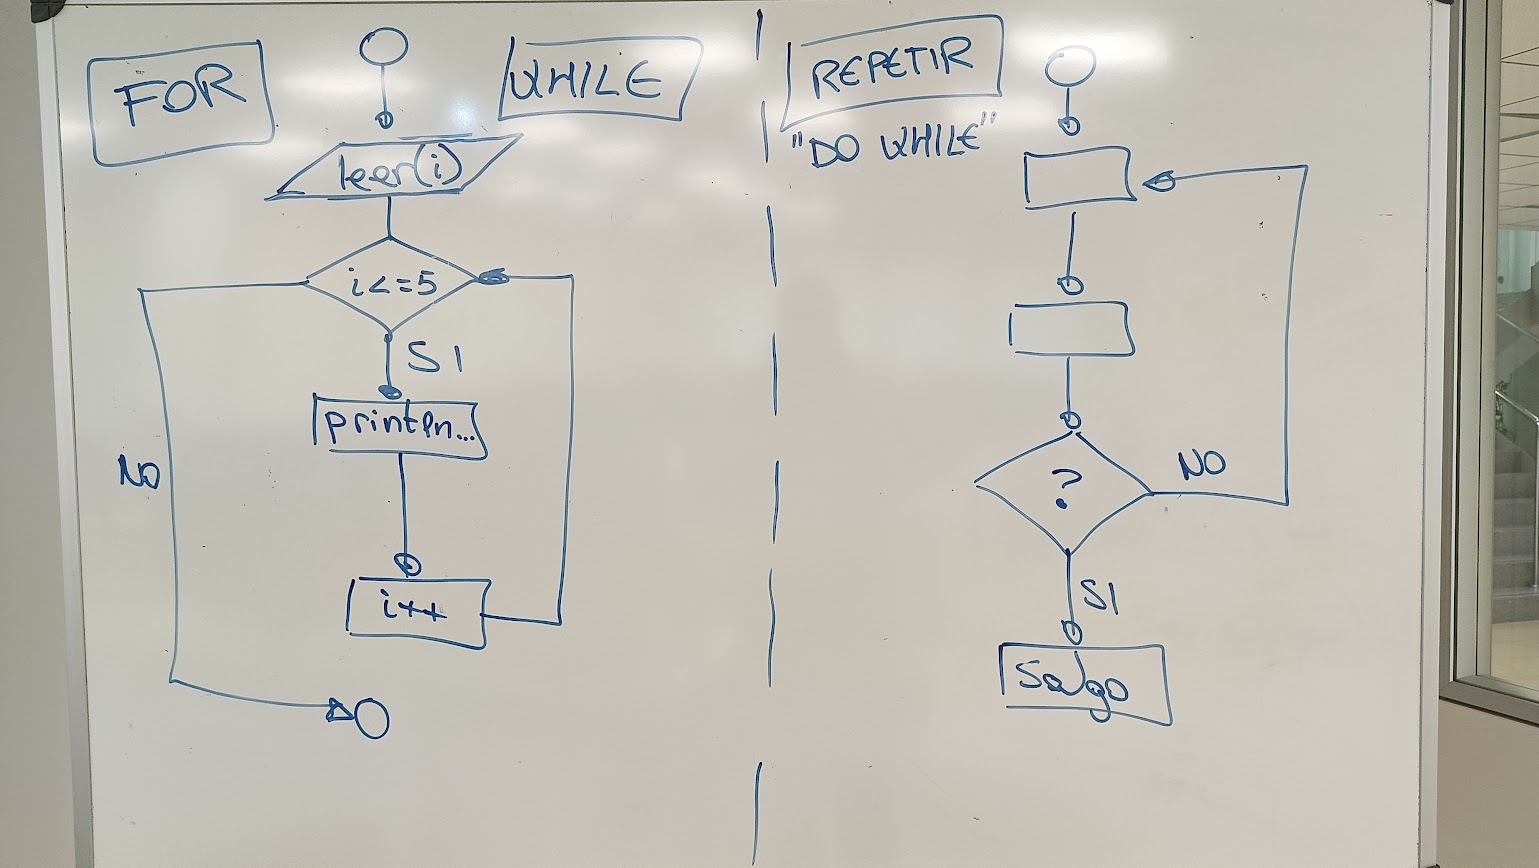 FOR
WHILE
leer(i)
i<=5
SI
println...
NO
i++
REPETIR
"DO WHILE"
?
NO
SI
Salgo